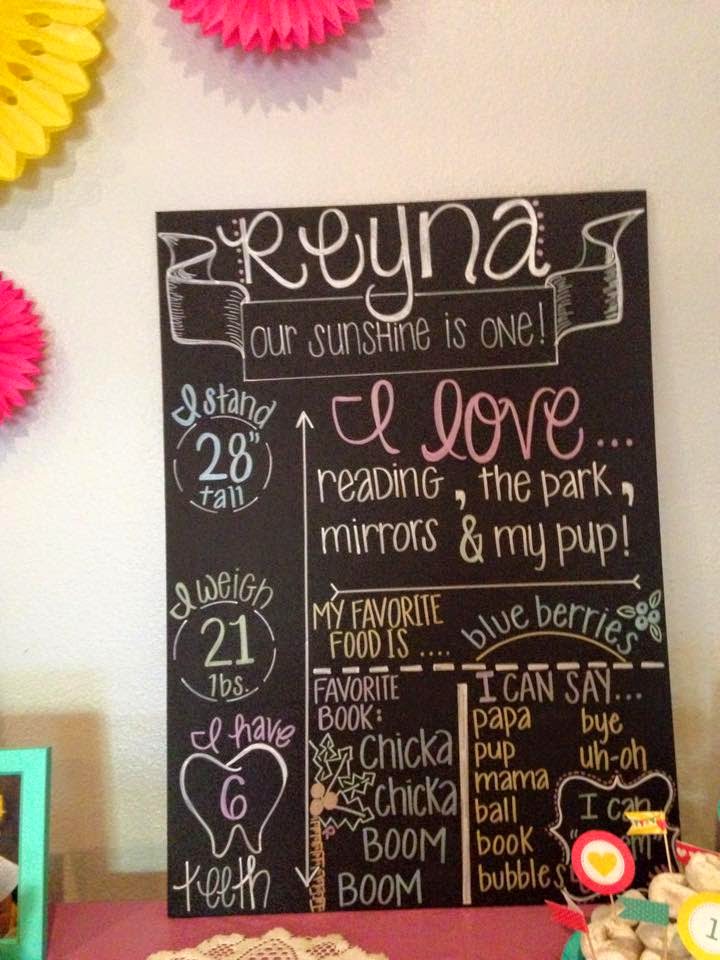 Reyna
our sunshine is one!
I stand
28"
tall
I weigh
21
lbs.
I have
6
teeth
I love...
reading, the park,
mirrors & my pup!
MY FAVORITE
FOOD IS ....
blue berries
FAVORITE
BOOK:
chicka
chicka
BOOM
BOOM
I CAN SAY...
papa
pup
mama
ball
book
bubbles
bye
uh-oh
I can
1